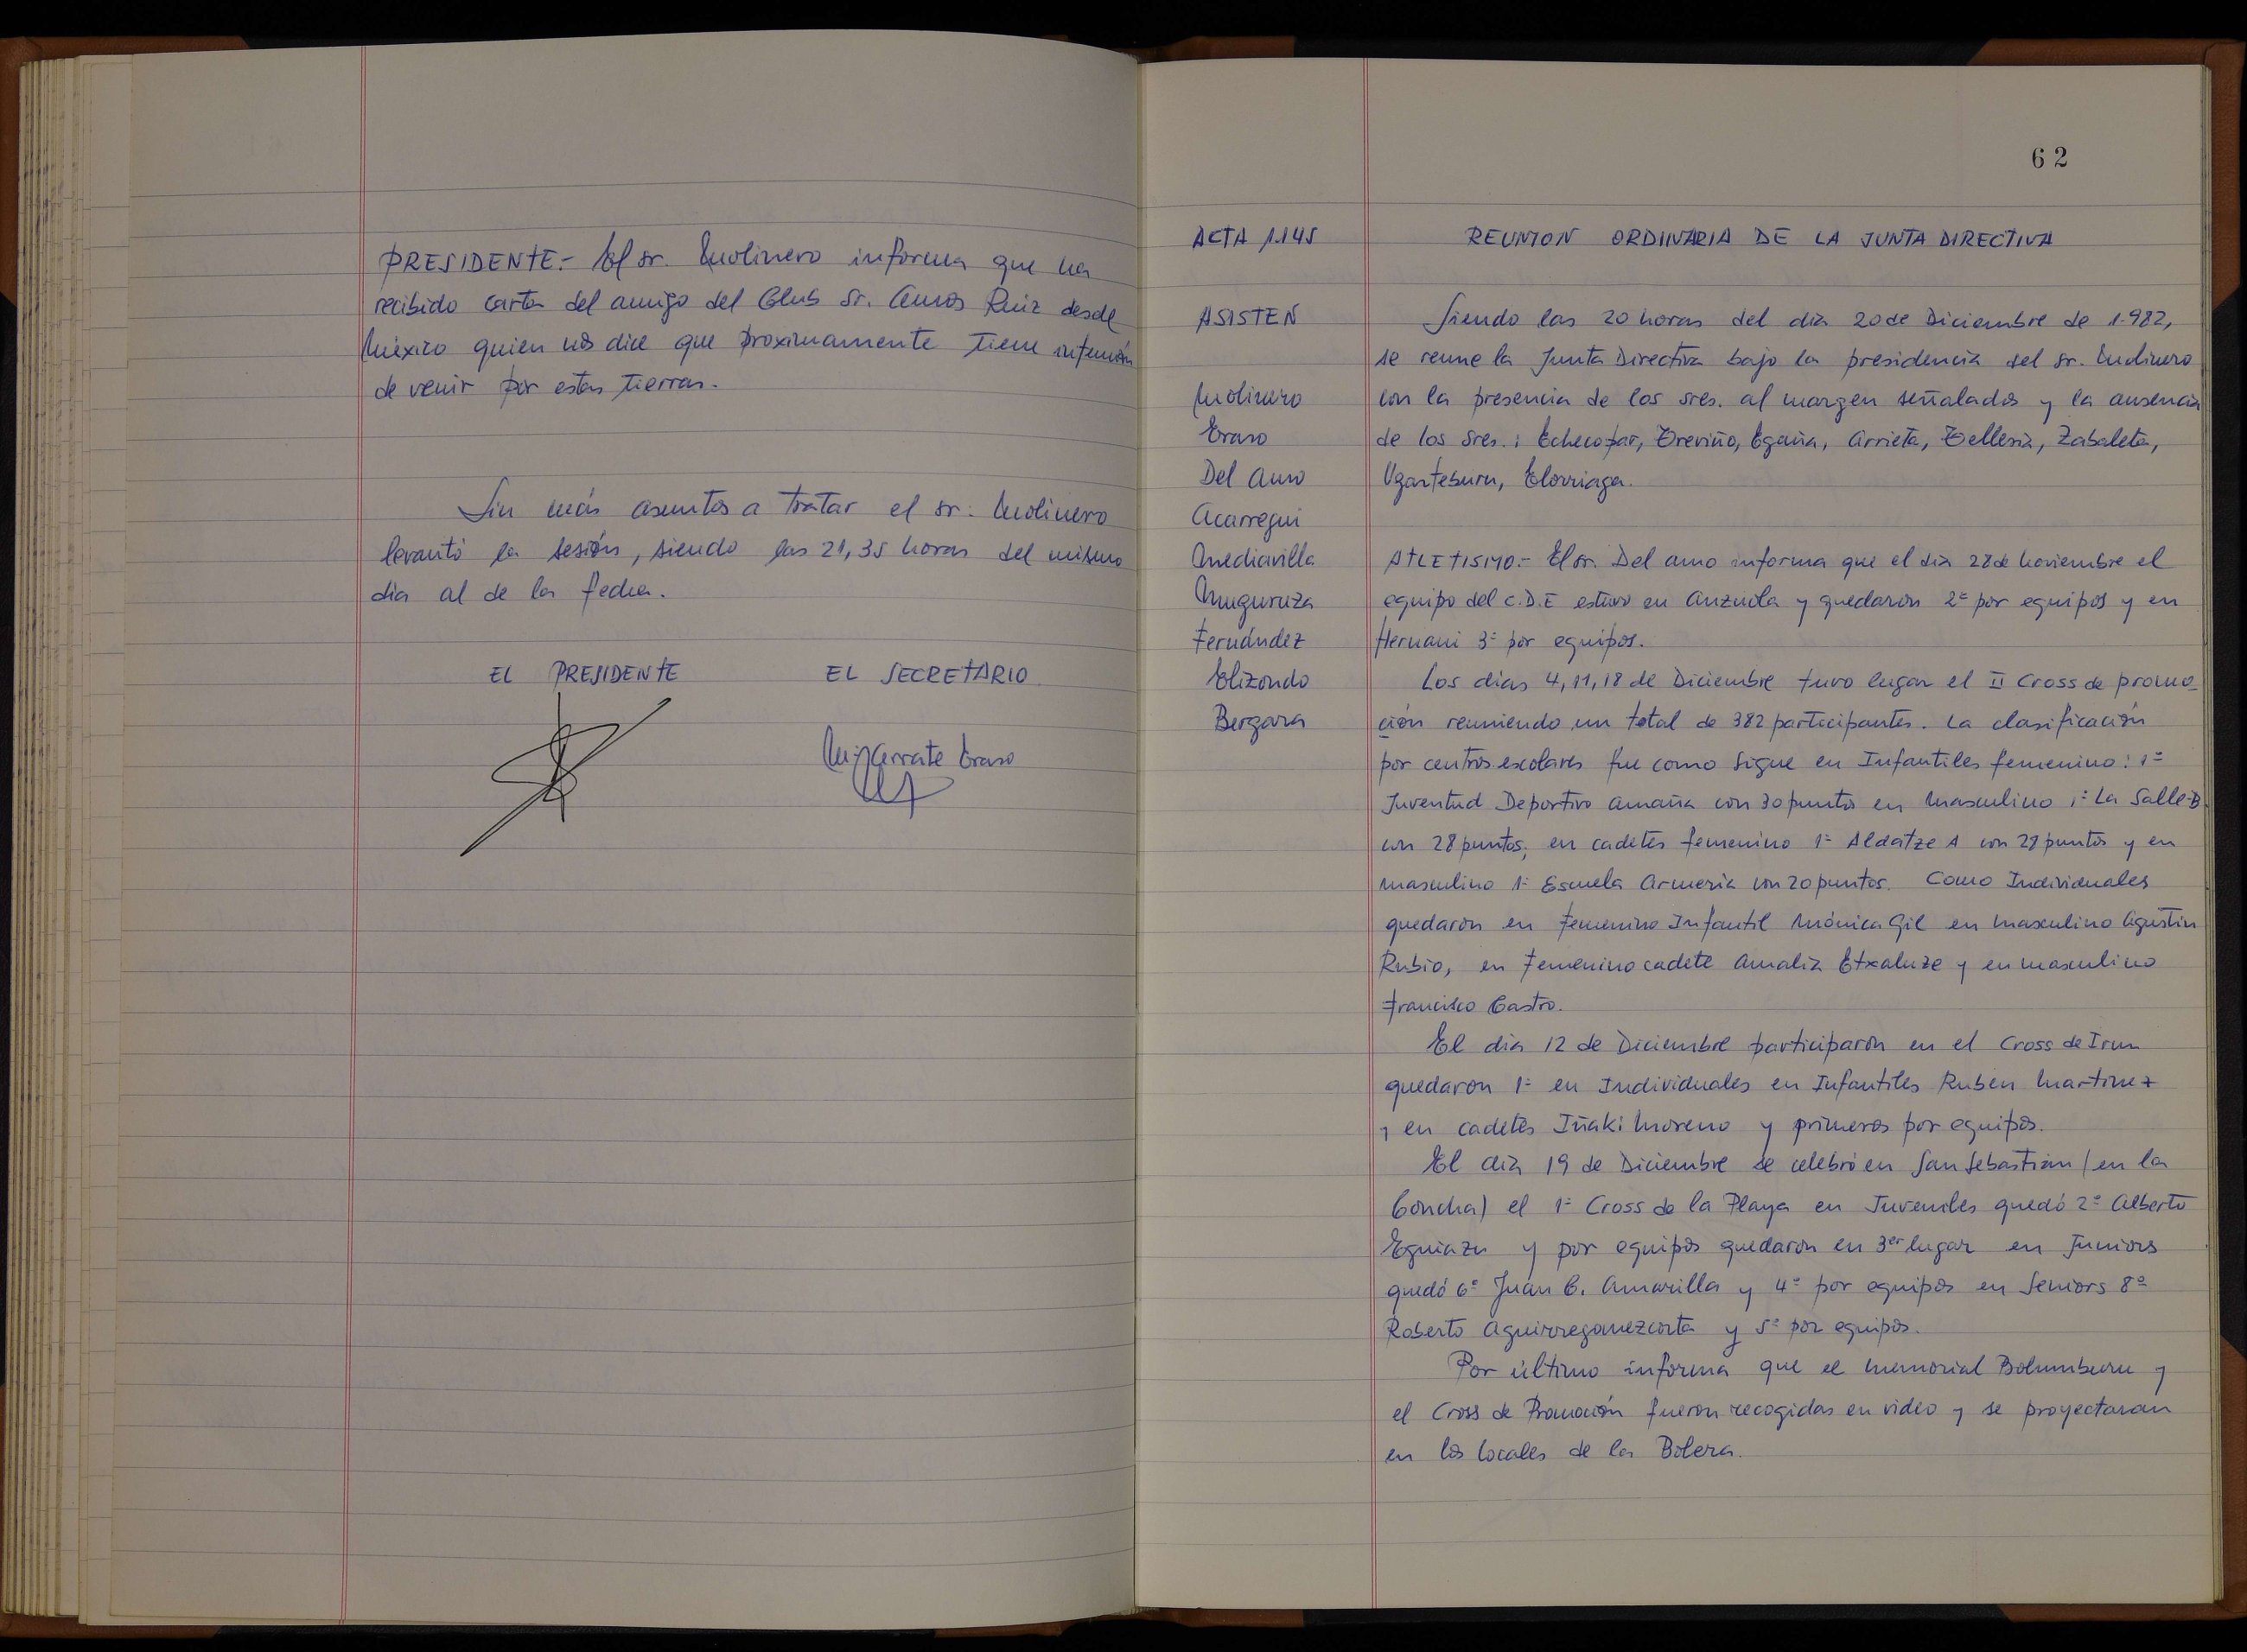 PRESIDENTE.- El sr. Molinero informa que ha
recibido carta del amigo del Club Sr. Amos Ruiz desde
México quien nos dice que proximamente tiene intención
de venir por estas tierras.
Sin más asuntos a tratar el sr. Molinero
levantó la sesión, siendo las 21,35 horas del mismo
dia al de la fecha.
EL PRESIDENTE EL SECRETARIO
Eraso
62
ACTA 1.145 REUNION ORDIINARIA DE LA JUNTA DIRECTIVA
ASISTEN
Molinero
Eraso
Del Amo
Acarregui
Mediavilla
Muguruza
Fernández
Elizondo
Bergara
Siendo las 20 horas del dia 20 de Diciembre de 1.982,
se reune la Junta Directiva bajo la presidencia del sr. Molinero
con la presencia de los sres. al margen señalados y la ausencia
de los sres.: Echecopar, Treviño, Egaña, Arrieta, Telleria, Zabaleta,
Ugarteburu, Elorriaga.
ATLETISMO.- El sr. Del Amo informa que el dia 28 de Noviembre el
equipo del C.D.E estuvo en Anzuola y quedaron 2º por equipos y en
Hernani 3º por equipos.
Los dias 4, 11, 18 de Diciembre tuvo lugar el II Cross de promo-
ción reuniendo un total de 382 participantes. La clasificación
por centros escolares fue como sigue en Infantiles femenino: 1º
Juventud Deportivo Amaña con 30 puntos en masculino 1º La Salle-B
con 28 puntos, en cadetes femenino 1º Aldatze A con 28 puntos y en
masculino 1º Escuela Armeria con 20 puntos. Como Individuales
quedaron en Femenino Infantil Mónica Gil en masculino Agustin
Rubio, en Femenino cadete Amalia Etxaluze y en masculino
Francisco Castro.
El dia 12 de Diciembre participaron en el Cross de Irun
quedaron 1º en Individuales en Infantiles Ruben Martinez
y en cadetes Iñaki Moreno y primeros por equipos.
El dia 19 de Diciembre se celebró en San Sebastian (en la
Concha) el 1º Cross de la Playa en Juveniles quedó 2º Alberto
Eguiazu y por equipos quedaron en 3er lugar en Juniors
quedó 6º Juan C. Amarilla y 4º por equipos en Seniors 8º
Roberto Aguirregomezcorta y 5º por equipos.
Por último informa que el memorial Bolumburu y
el Cross de Promoción fueron recogidas en video y se proyectaran
en los locales de la Bolera.